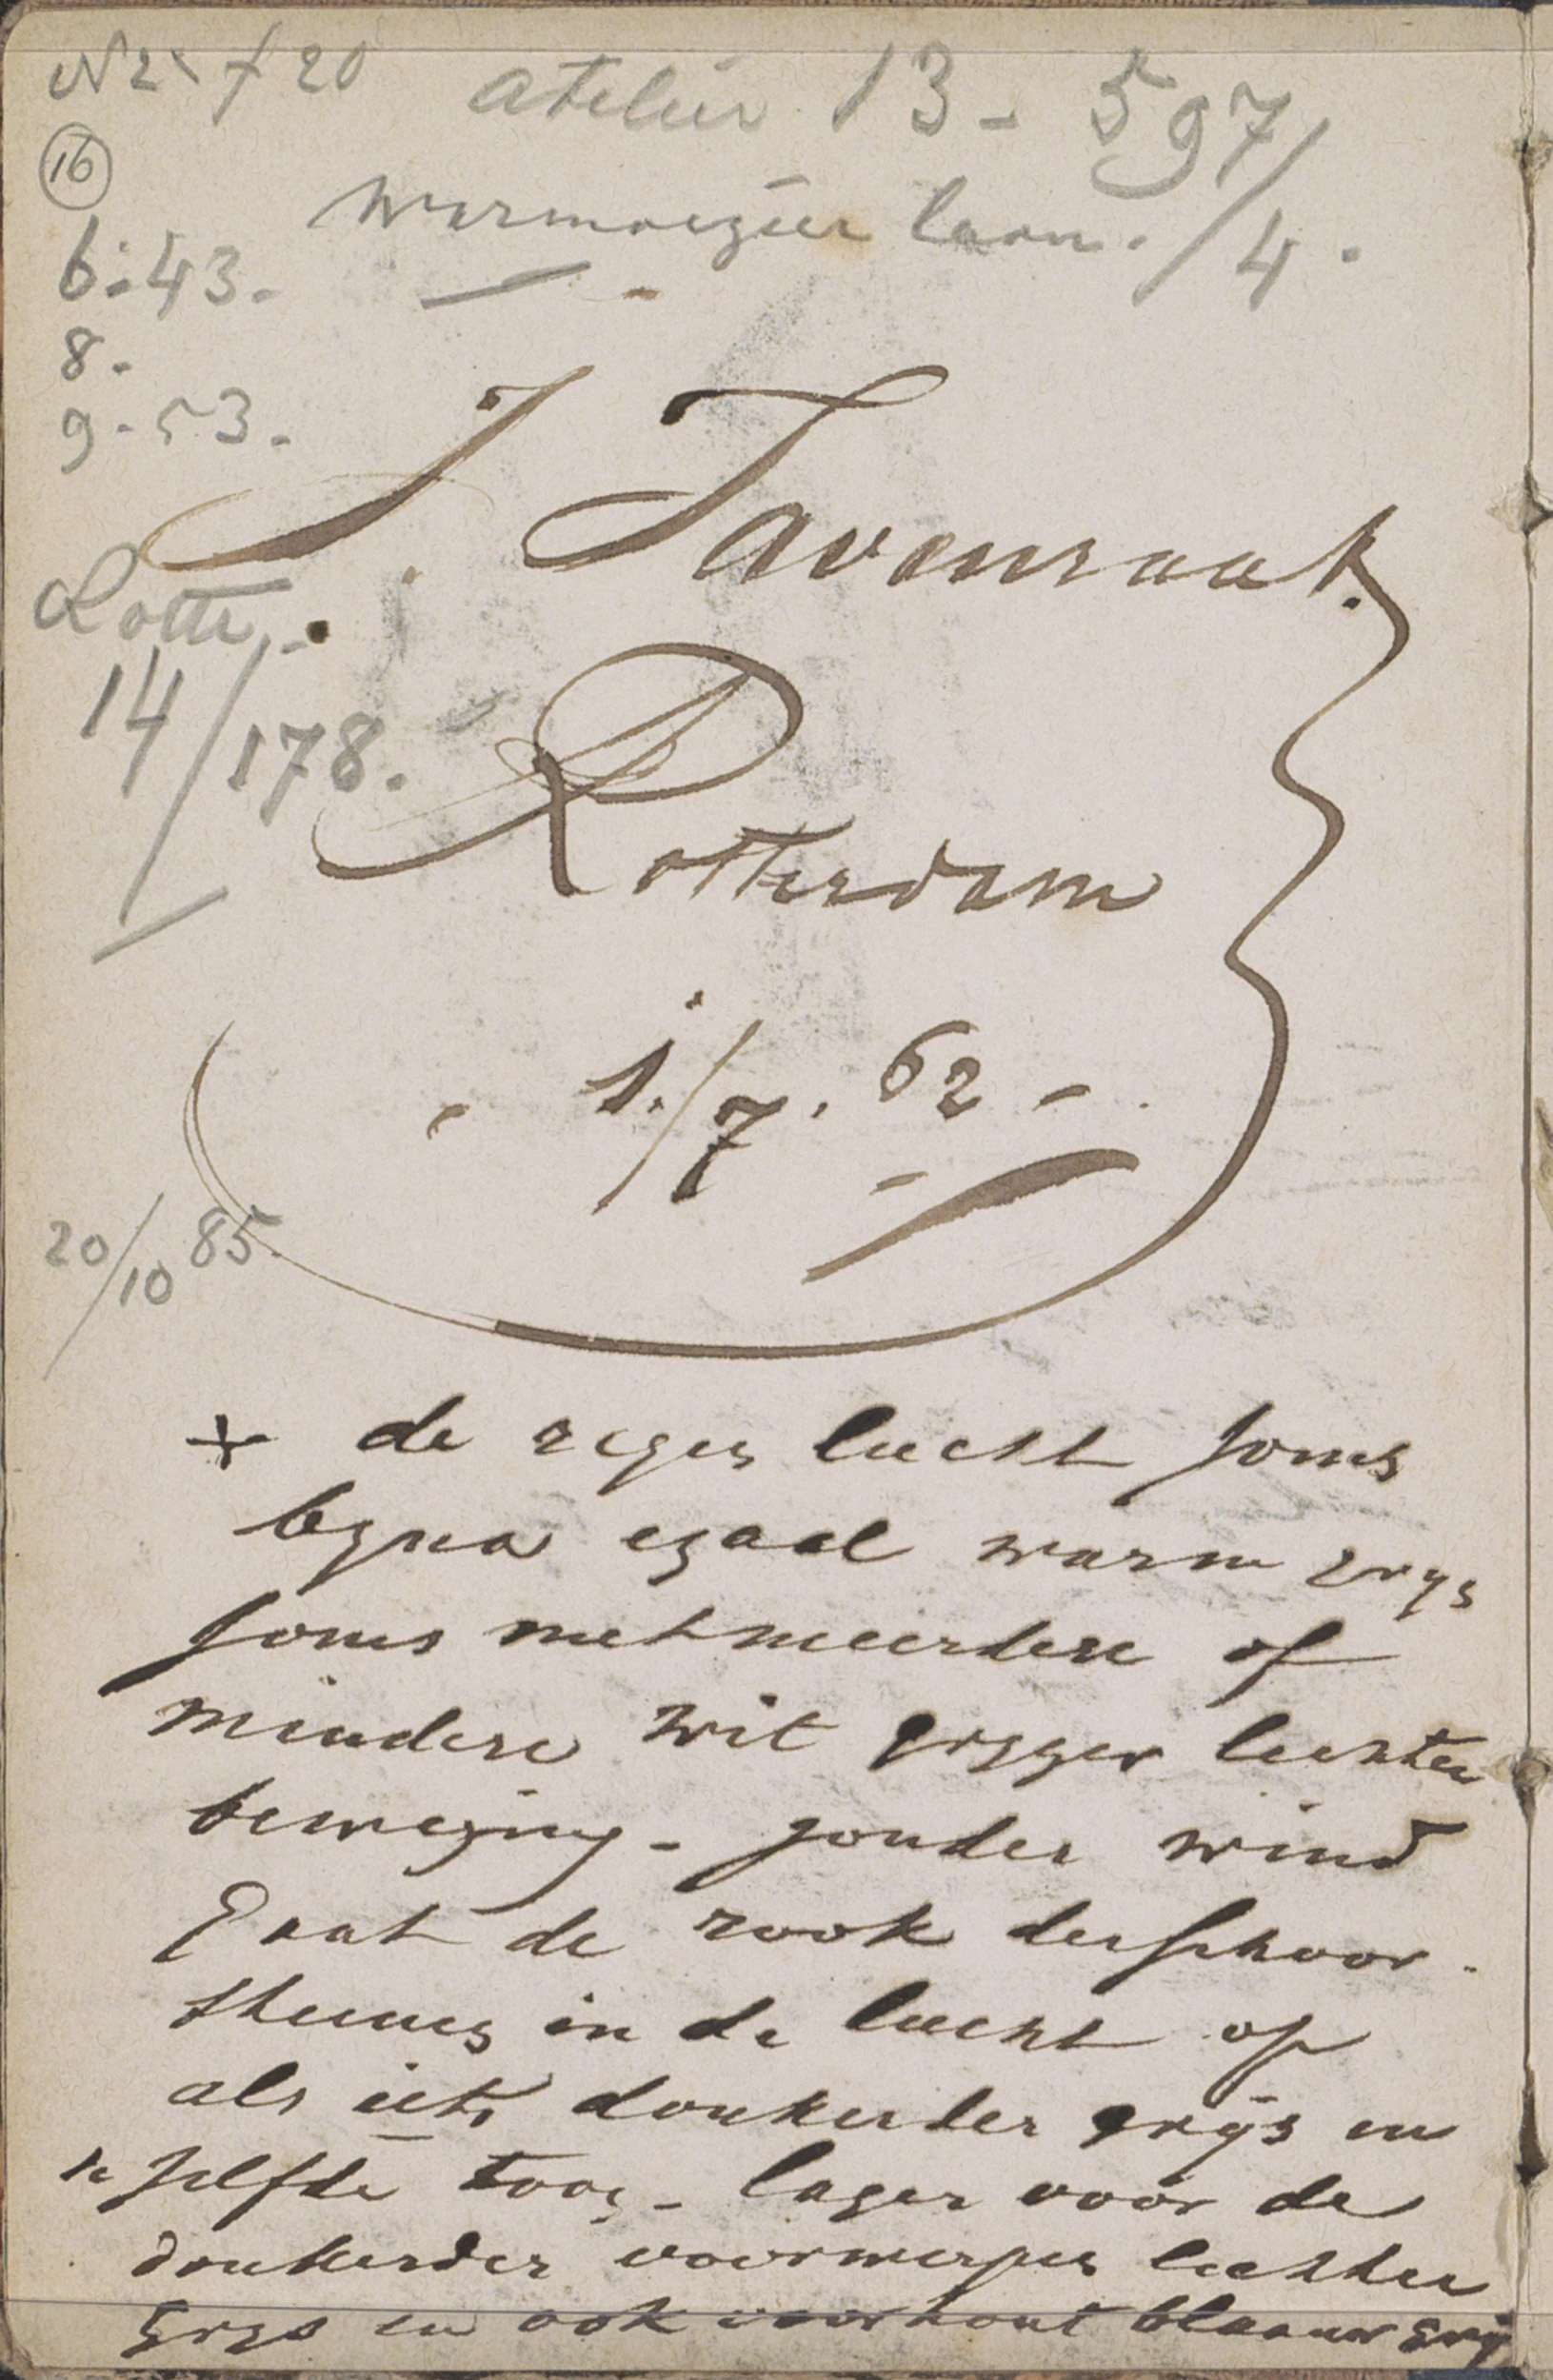 N2 f 20
atelier 13-597/4.
16
warmoezier laan.
6:43.
8.
9-53.
J. Tavenraat.
Lotte
14/178.
Rotterdam
1/7. 62-
20/10 85.
+ de regen lucht soms
byna egaal warm grys
soms met meerdere of
mindere wit gryzer lichten
beweging - zonder wind
gaat de rook der schoor-
steenes in de lucht op
als iets donkerder grijs en
zelfde toon - lager voor de
donkerder voorwerpen lichter
grys en ook voorkout blaauw grij